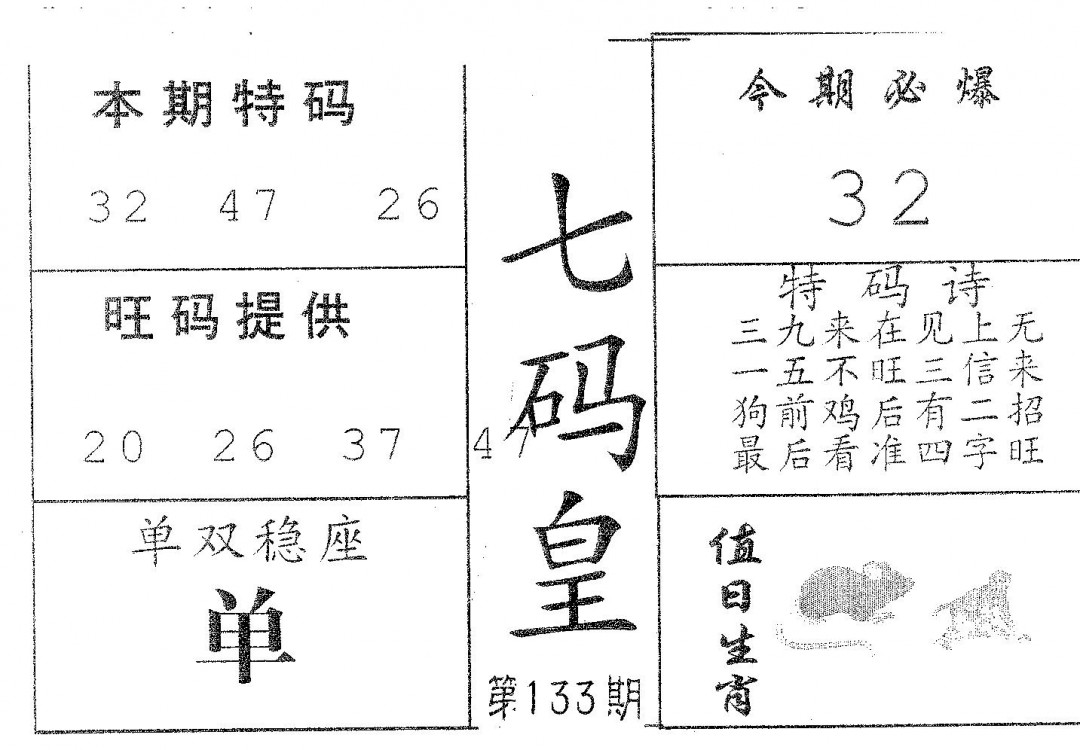 本期特码
32 47 26
旺码提供
20 26 37 47
单双稳座
单
七码皇
第133期
今期必爆
32
特码诗
三九来在见上无
一五不旺三信来
狗前鸡后有二招
最后看准四字旺
值日生肖